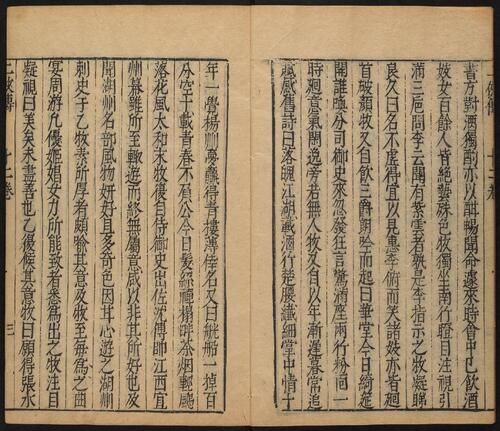 書方對酒獨酌亦以酣暢聞命遽來時會中已飲酒
妓女百餘人皆絕藝殊色牧獨坐南行瞪目注視引
滿三巵問李云聞有紫雲者孰是李指示之牧凝睇
良久曰名不虛得宜以見惠李俯而笑諸妓亦皆迴
首破顏牧又自飲三爵朗吟而起曰華堂今日綺筵
開誰喚分司御史來忽發狂言驚滿座兩行粉面一
時迴意氣閒逸旁若無人牧又自以年漸遲暮常追
賦感舊詩曰落魄江湖載酒行楚腰纖細掌中情十
年一覺楊州夢贏得青樓薄倖名又曰觥船一棹百
分空十載青春不負公今日鬢絲禪榻畔茶烟輕颺
落花風太和末牧復自侍御史出佐沈傳師江西宣
州幕雖所至輒遊而終無屬意咸以非其所好也及
聞湖州名郡風物妍好且多奇色因甘心遊之湖州
刺史于乙牧素所厚者頗喻其意及牧至每為之曲
宴周遊凡優姬娼女力所能致者悉為出之牧注目
凝視曰美矣未盡善也乙復候其意牧曰願得張水
三